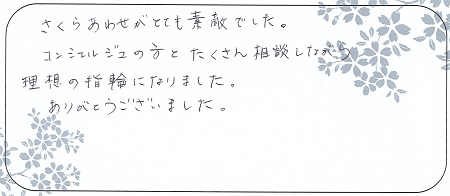 さくらあわせがとても素敵でした。
コンシェルジュの方とたくさん相談しながら
理想の指輪になりました。
ありがとうございました。